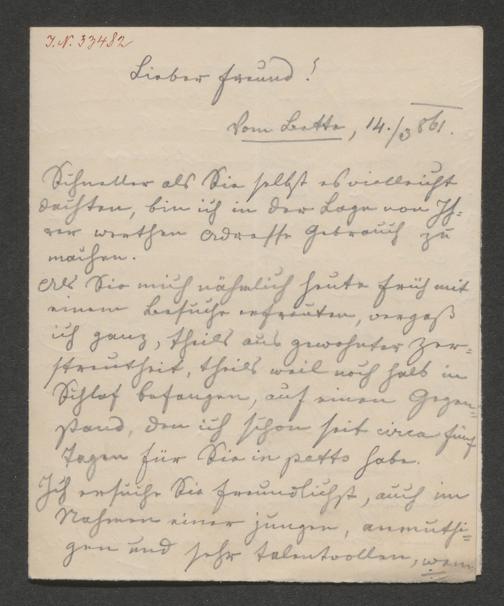 I.N. 33482
Lieber Freund!
Vom Bette, 14./3 861.
Schneller als Sie selbst es vielleicht
dachten, bin ich in der Lage von Ih-
rer werthen Adresse Gebrauch zu
machen.
Als Sie mich nähmlich heute früh mit
einem Besuche erfreuten, vergaß
ich ganz, theils aus gewohnter Zer-
streutheit, theils weil noch halb in
Schlaf befangen, auf einen Gegen-
stand, den ich schon seit circa fünf
Tagen für Sie in petto habe.
Ich ersuche Sie freundlichst, auch im
Nahmen einer jungen, anmuthi-
gen und sehr talentvollen, wenn